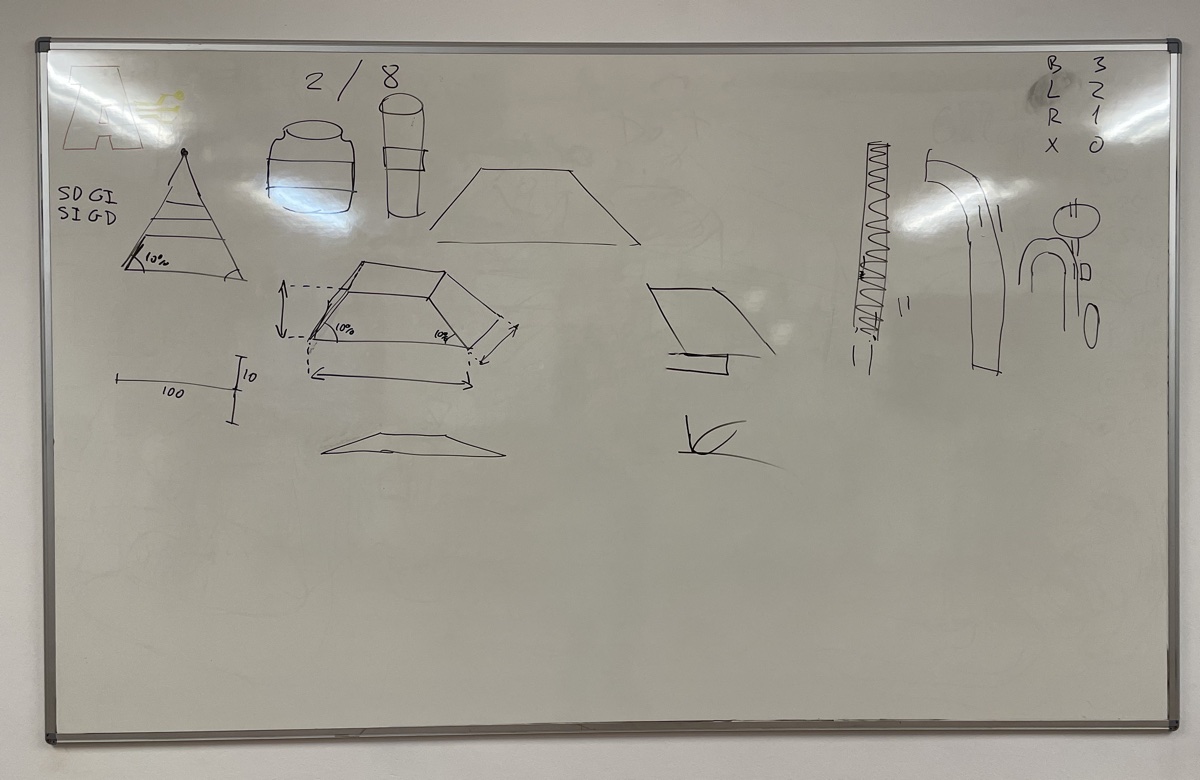 A
2 / 8
B 3
L 2
R 1
X 0
SDGI
SIGD
10%
10% 10%
10
100